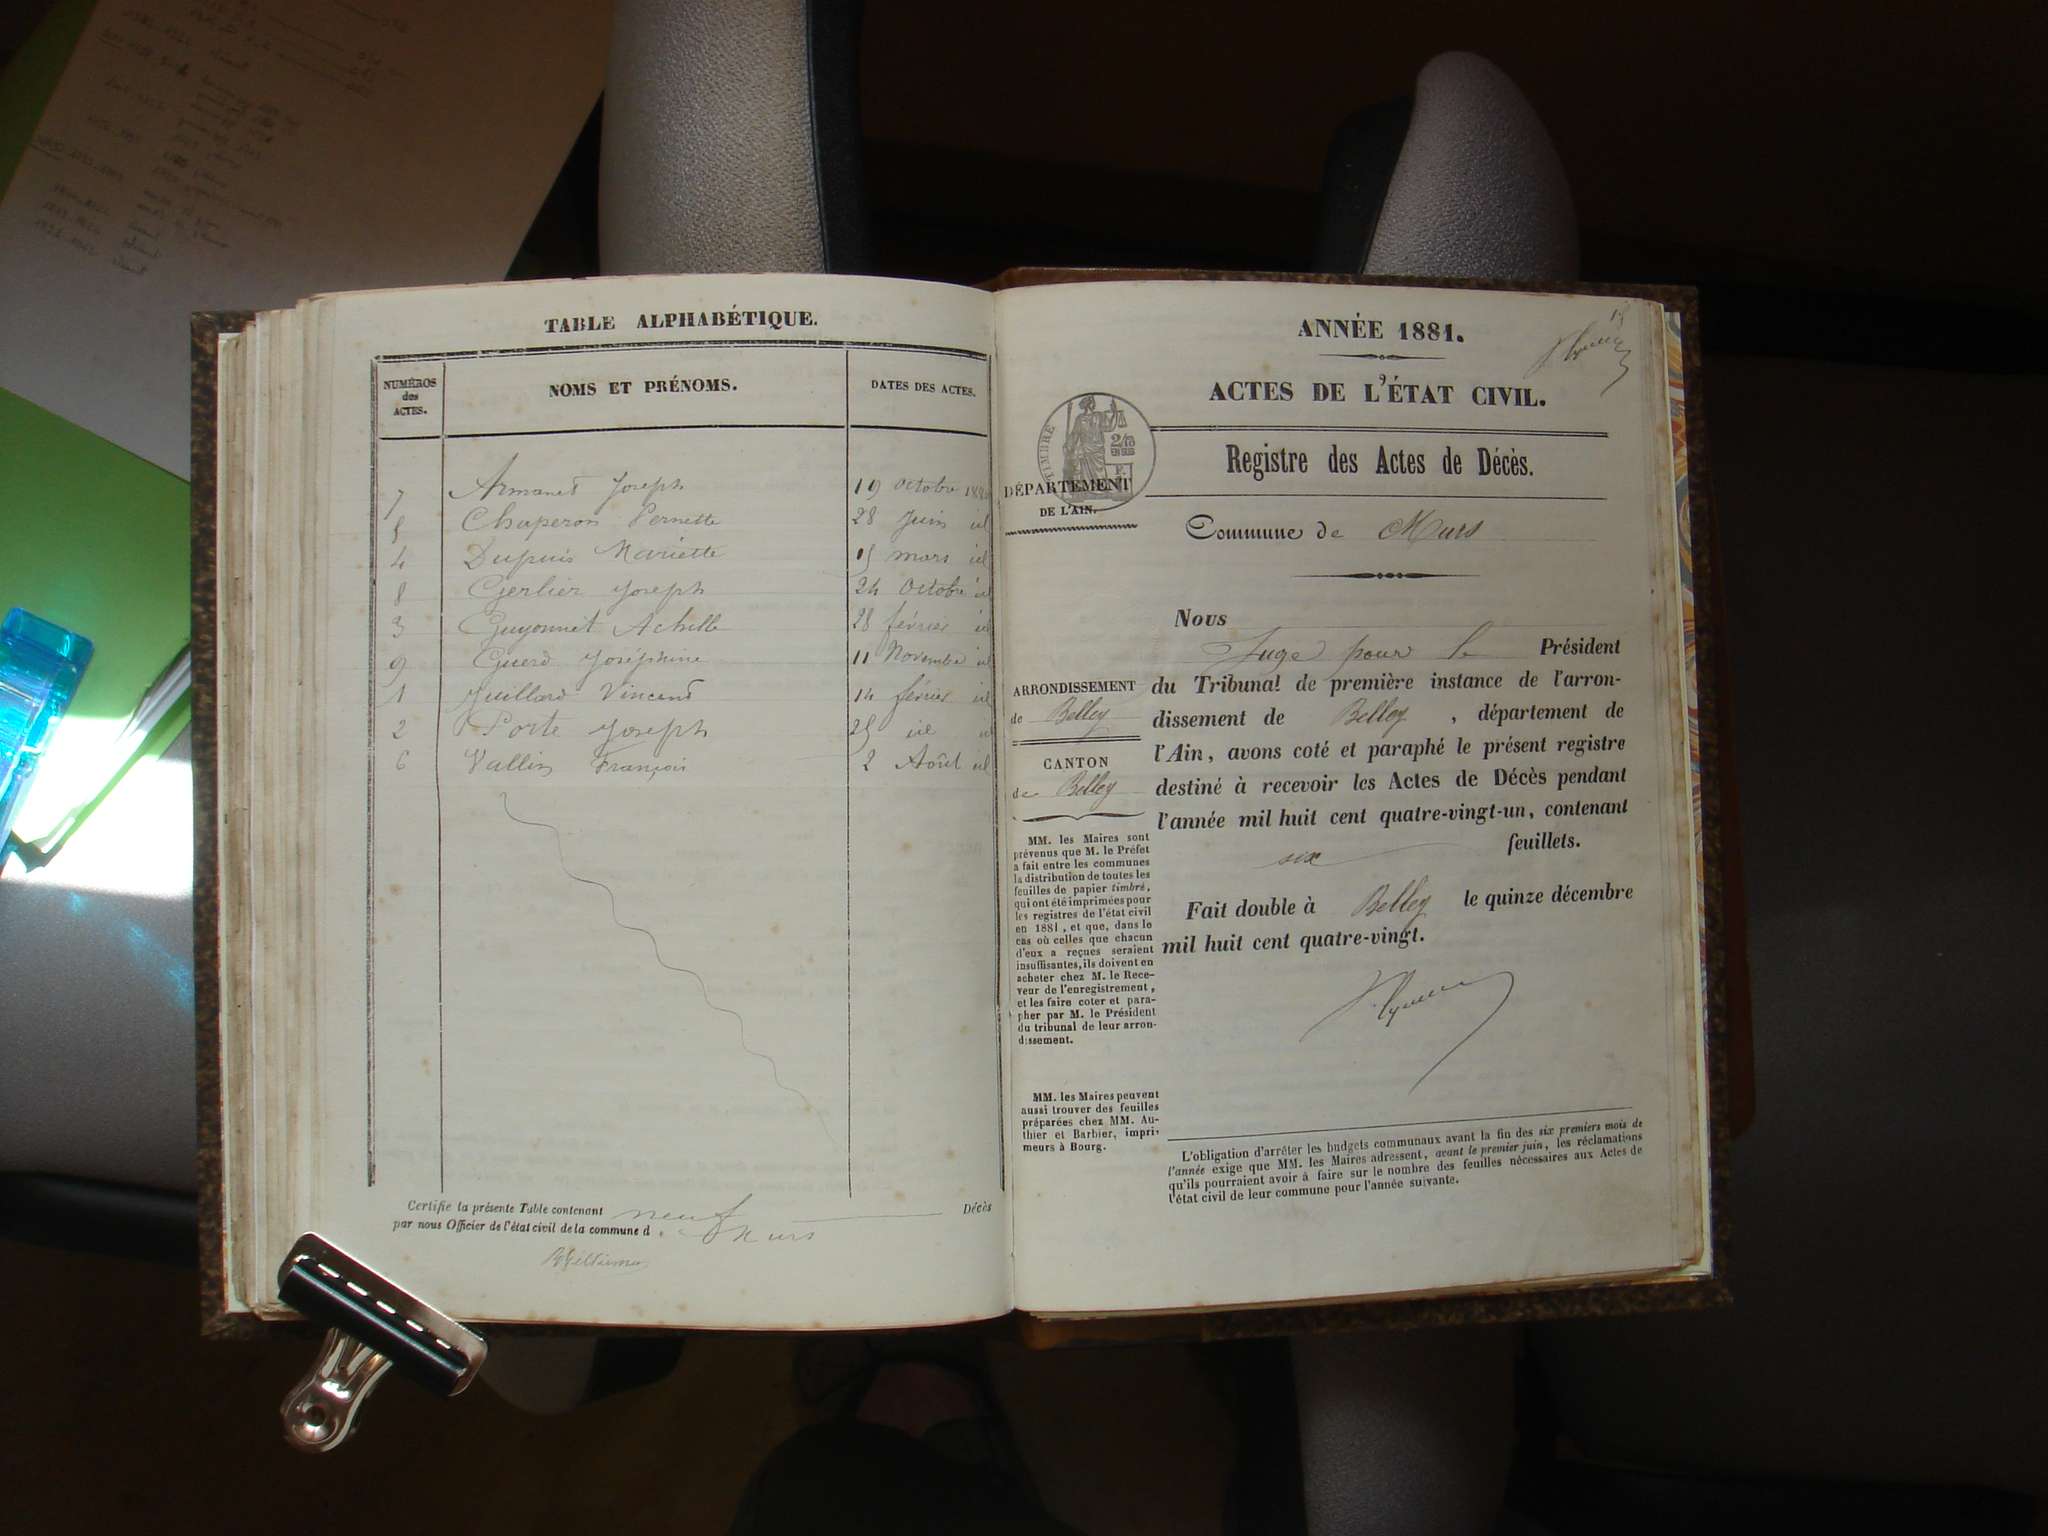 TABLE ALPHABÉTIQUE.
NUMÉROS
des
ACTES.
NOMS ET PRÉNOMS.
DATES DES ACTES.
7 Armanet Joseph 19 octobre 1880
5 Chaperon Pernette 28 Juin id
4 Dupuis Mariette 15 mars id
8 Gerlier Joseph 24 Octobre id
3 Guyonnet Achille 28 février id
9 Joséphine 11 Novembre id
1 Juillard Vincent 14 février id
2 Porte Joseph 25 id id
6 Vallin François 2 Août id
Certifie la présente Table contenant neuf Décès
par nous Officier de l'état civil de la commune d Murs
ANNÉE 1881.
ACTES DE L'ÉTAT CIVIL.
TIMBRE
Registre des Actes de Décès.
DÉPARTEMENT
DE L'AIN.
Commune de Murs
Nous
Juge pour le Président
du Tribunal de première instance de l'arron-
dissement de Belley, département de
l'Ain, avons coté et paraphé le présent registre
destiné à recevoir les Actes de Décès pendant
l'année mil huit cent quatre-vingt-un, contenant
six feuillets.
Fait double à Belley le quinze décembre
mil huit cent quatre-vingt.
ARRONDISSEMENT
de Belley
CANTON
de Belley
MM. les Maires sont
prévenus que M. le Préfet
a fait entre les communes
la distribution de toutes les
feuilles de papier timbré,
qui ont été imprimées pour
les registres de l'état civil
en 1881, et que, dans le
cas où celles que chacun
d'eux a reçues seraient
insuffisantes, ils doivent en
acheter chez M. le Rece-
veur de l'enregistrement,
et les faire coter et para-
pher par M. le Président
du tribunal de leur arron-
dissement.
MM. les Maires peuvent
aussi trouver des feuilles
préparées chez MM. Au-
thier et Barbier, impri-
meurs à Bourg.
L'obligation d'arrêter les budgets communaux avant la fin des six premiers mois de
l'année exige que MM. les Maires adressent, avant le premier juin, les réclamations
qu'ils pourraient avoir à faire sur le nombre des feuilles nécessaires aux Actes de
l'état civil de leur commune pour l'année suivante.